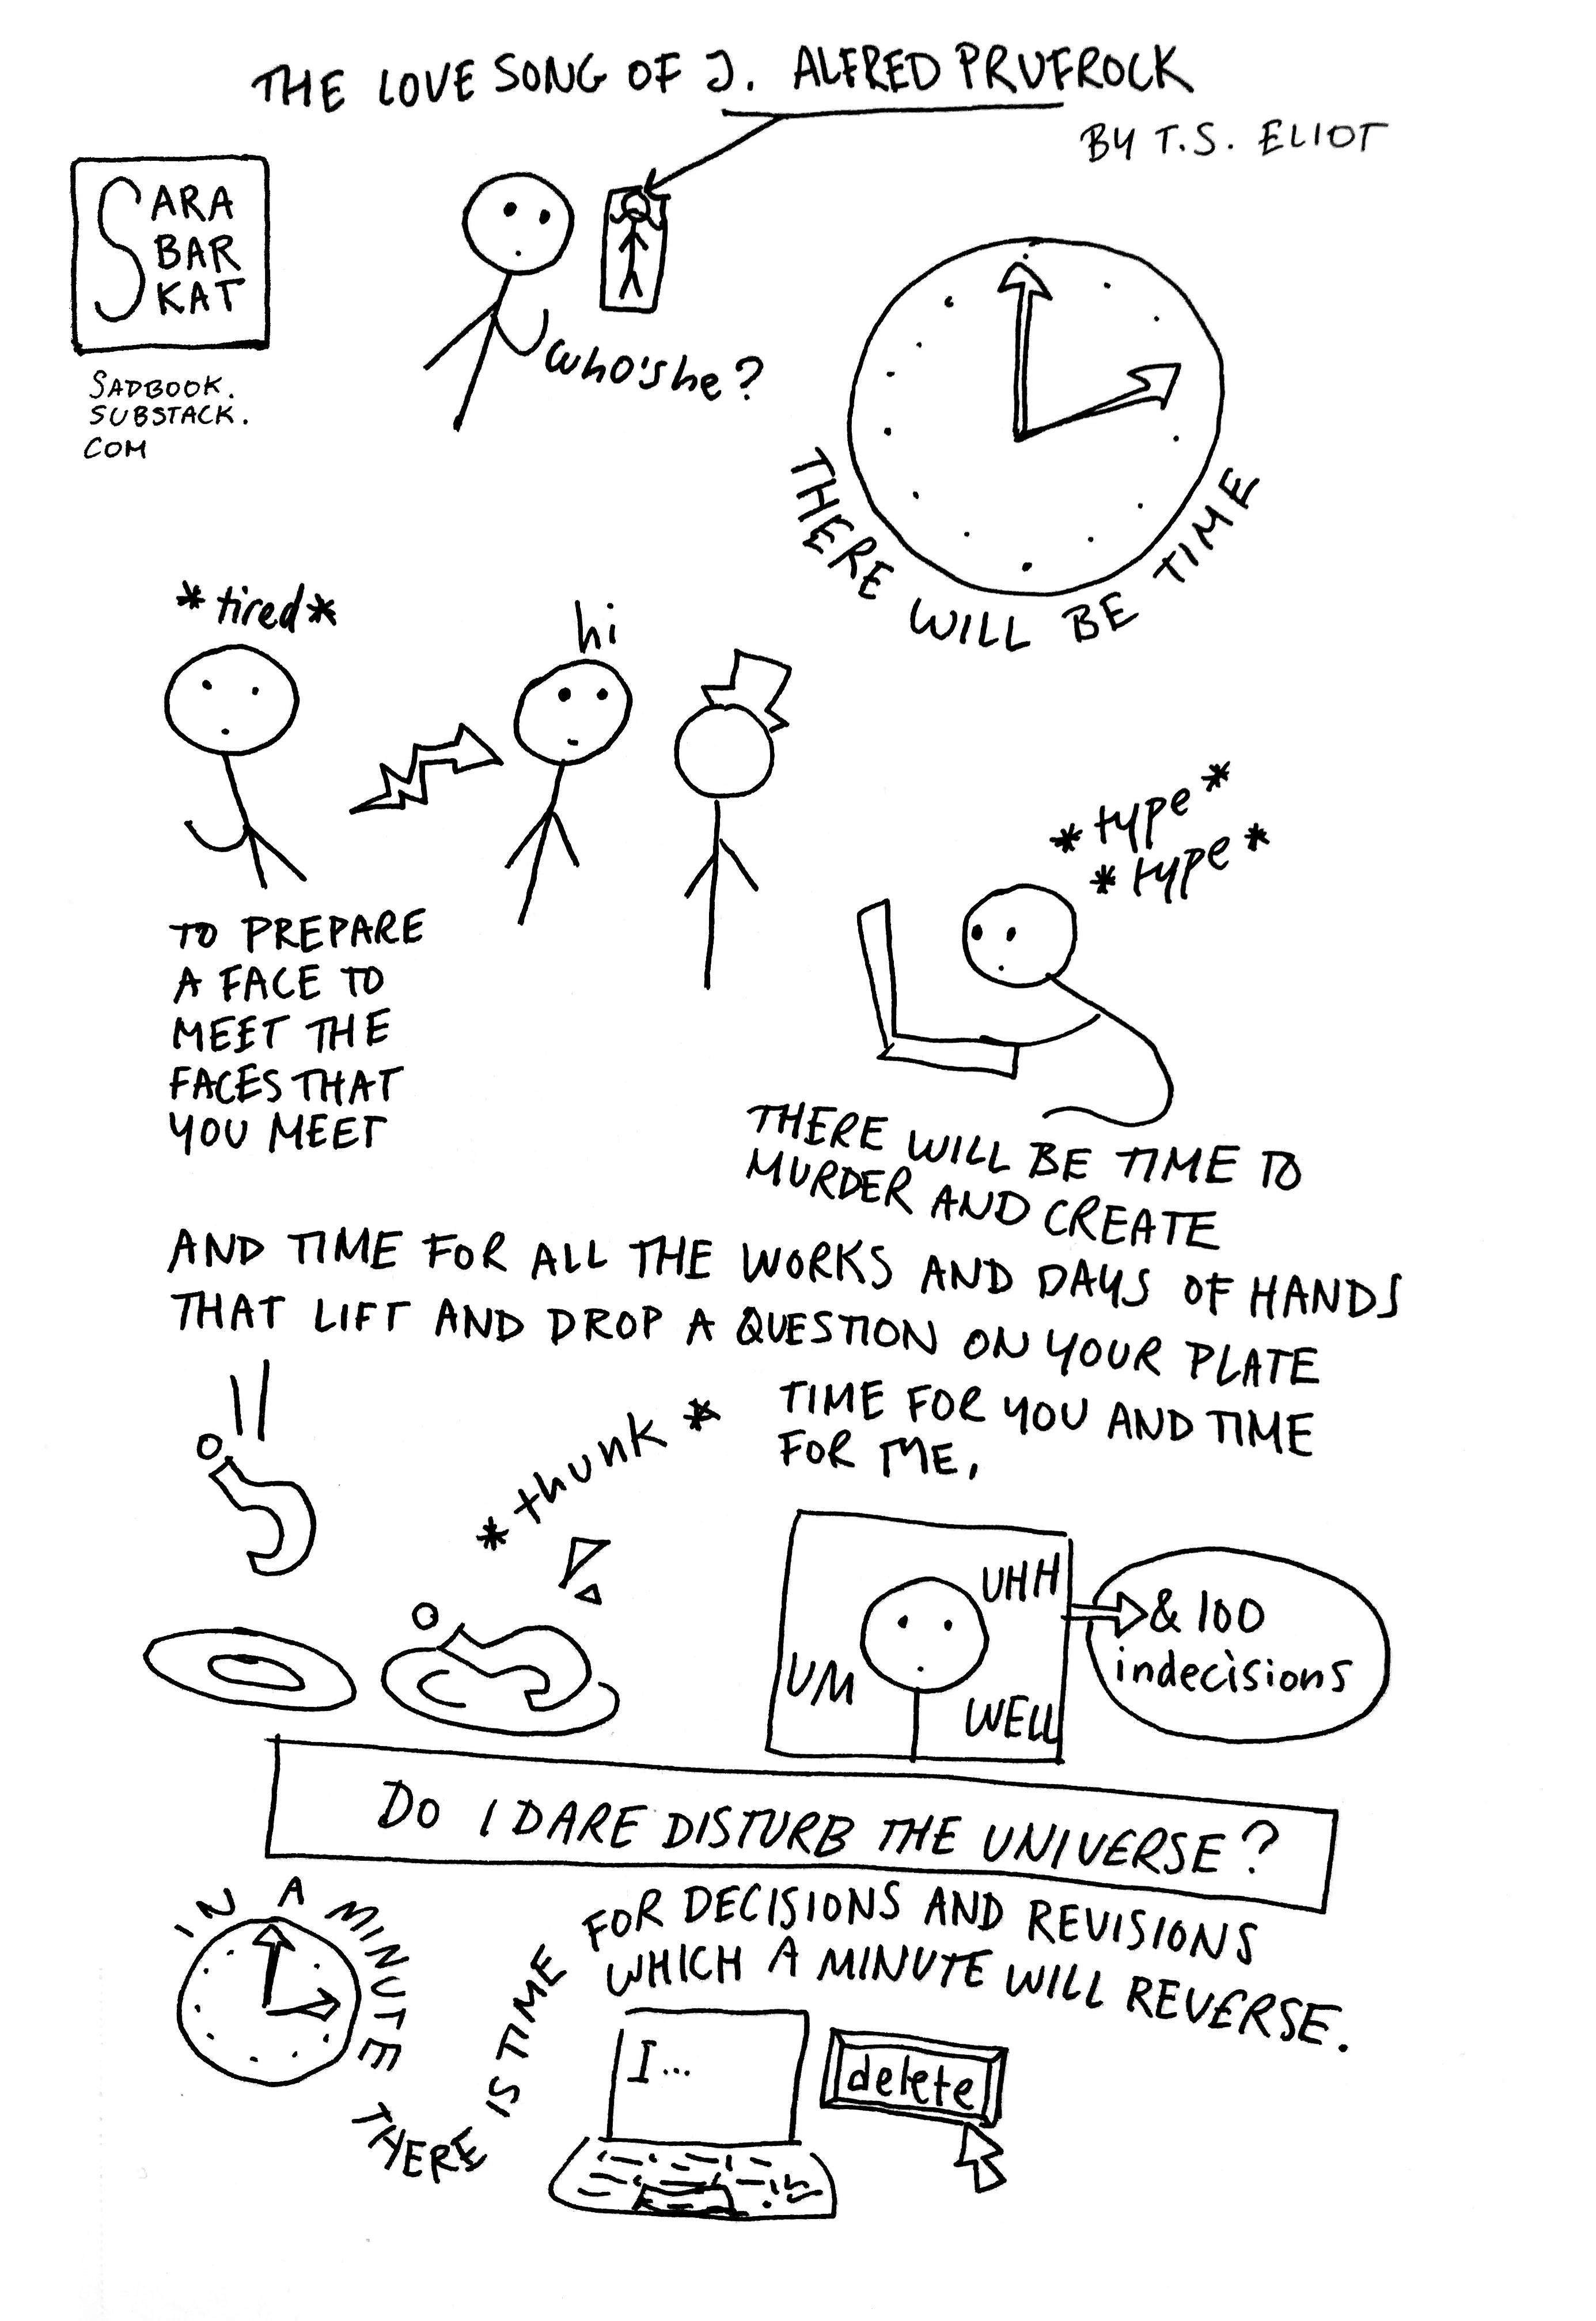 THE LOVE SONG OF J. ALFRED PRUFROCK
BY T.S. ELIOT
SARA
BAR
KAT
SADBOOK.
SUBSTACK.
COM
who's he?
THERE WILL BE TIME
*tired*
hi
TO PREPARE
A FACE TO
MEET THE
FACES THAT
YOU MEET
*type*
*type*
THERE WILL BE TIME TO
MURDER AND CREATE
AND TIME FOR ALL THE WORKS AND DAYS OF HANDS
THAT LIFT AND DROP A QUESTION ON YOUR PLATE
TIME FOR YOU AND TIME
FOR ME,
*thunk*
!
UHH
UM
WELL
& 100
indecisions
DO I DARE DISTURB THE UNIVERSE?
IN A MINUTE THERE IS TIME
FOR DECISIONS AND REVISIONS
WHICH A MINUTE WILL REVERSE.
I...
delete